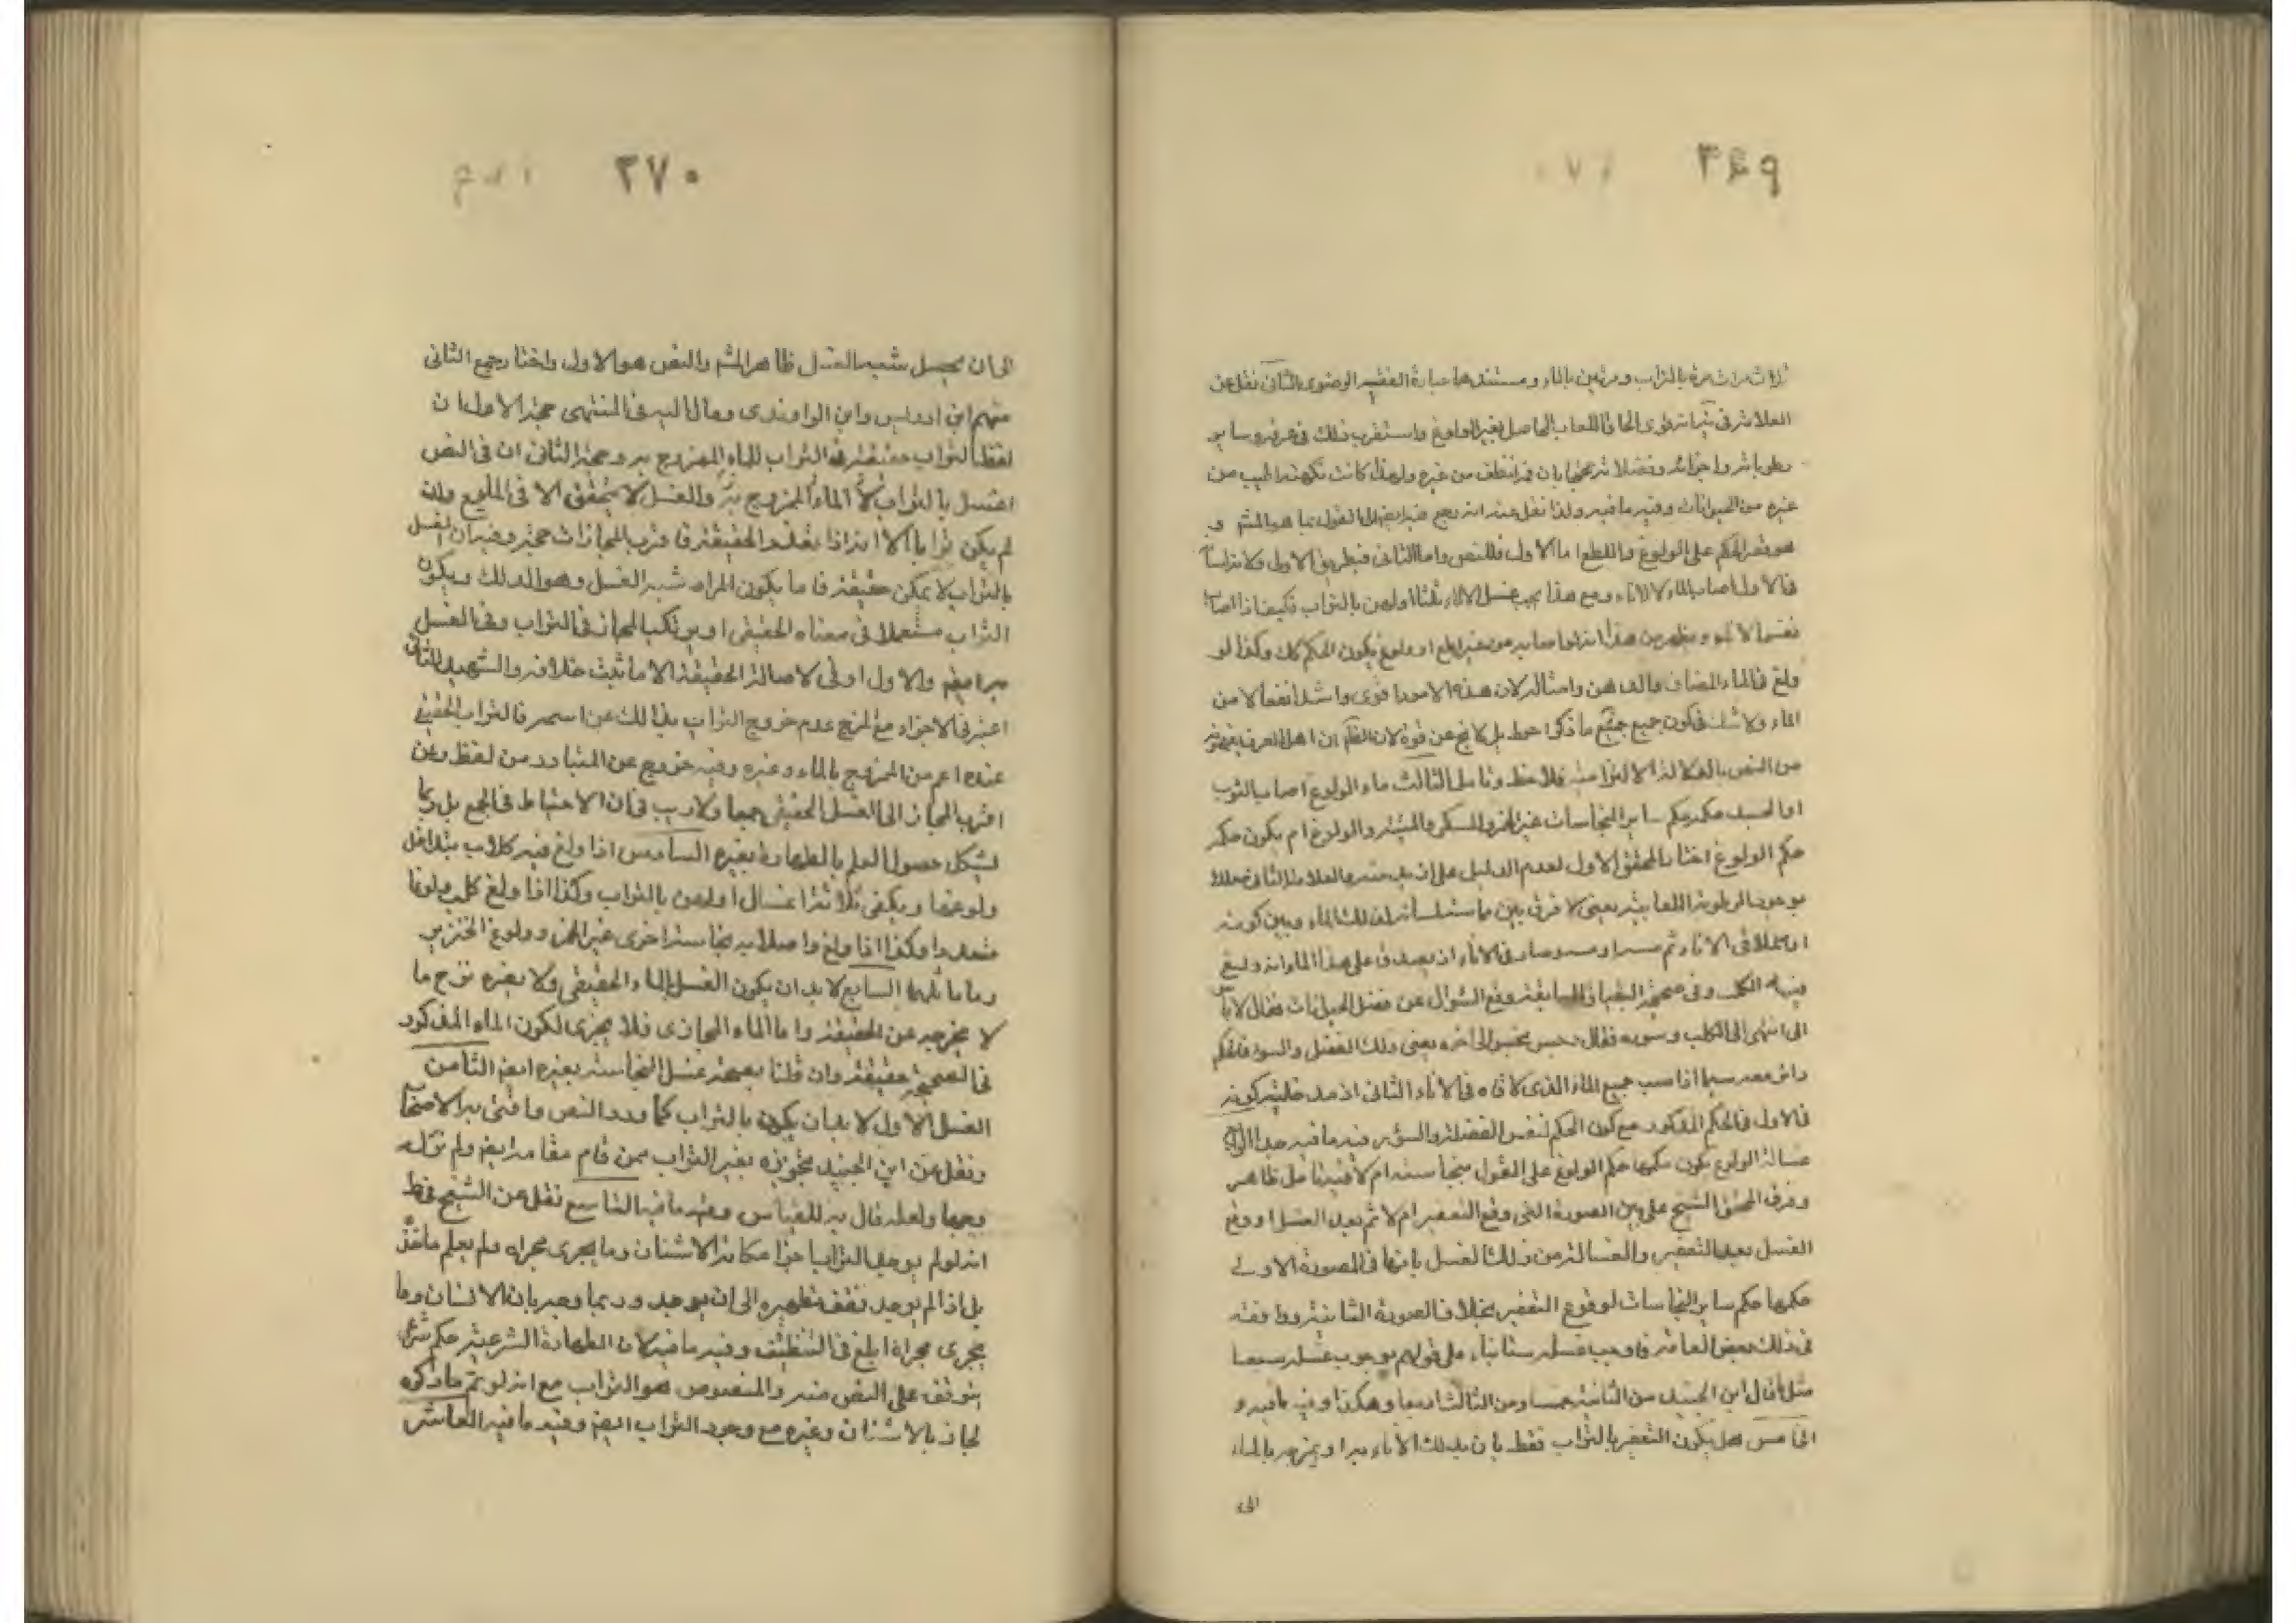 ٣٤٩
ثلاث مرات مرة بالتراب ومرتين بالماء ومستندها عبارة الفقيه الرضوى الثانى نقل عن
العلامة فى نهايته قوى الحاق اللعاب الحاصل بغير الولوغ واستقرب ذلك فى عرقه وساير
رطوباته واجزائه وفضلاته محتجا بان فمه انظف من غيره ولهذا كانت نكهته اطيب من
غيره من الحيوانات وفيه ما فيه ولذا نقل عنه انه رجع فيه ايضا الى القول بما هو المشهر و
هو قصر الحكم على الولوغ واللطع اما الاول فللنص واما الثانى فبطريق الاولى ولانه اساٴ
فالاول اصاب الماء لا الاناء ومع هذا يجب غسل الاناء ثلثا اولهن بالتراب فكيف اذا اصاب
نفس الاناء ويظهر من هذا انه لو اصابه من غير لطع او ولوغ يكون الحكم كك وكذا لو
ولغ فى الماء المضاف والدهن وامثاله لان هذه الامور اقوى واشد انفعالا من
الماء ولا شك فى كون جميع ما ذكر احوط بل لا يخ عن قوة لان الظاهر ان اهل العرف يفهمونه
من النص بالدلالة الالتزامية فلاحظ وتامل الثالث ماء الولوغ اصاب الثوب
او الجسد حكمه حكم ساير النجاسات غير الخمر والمسكر والميتة والولوغ ام يكون حكمه
حكم الولوغ اختار المحقق الاول لعدم الدليل على ازيد منه والعلامة الثانى معللا
بوجود الرطوبة اللعابية يعنى لا فرق بين ما سئل سائر ذلك الماء وبين كونه
اولا فى الاناء ثم صار فى الاناء ان يصدق على هذا الماء انه ولغ
فيه الكلب وفى صحيحة البقباق السابقة وقع السؤال عن فضل الحيوانات فقال لا باس
الى انتهى الى الكلب وسوره فقال رجس نجس الى اخره يعنى ذلك الفضل والسور فالحكم
دائر معه سيما اذا صب جميع الماء الذى لاقاه فى الاناء الثانى
فى الاول فالحكم المذكور مع كون الحكم لنفس الفضلة والسؤر فيه ما فيه جدا الرابع
غسالة الولوغ يكون حكمها حكم الولوغ على القول بنجاسته ام لا فيه تامل ظاهر
وفرق المحقق الشيخ على بين الصورة التى وقع التعفير ام لا ثم بعد الغسل او وقع
الغسل بعد التعفير والغسالة من ذلك الغسل بانها فى الصورة الاولى
حكمها حكم ساير النجاسات لوقوع التعفير بخلاف الصورة الثانية ووافقه
فى ذلك بعض العامة فاوجب غسله ستا بناء على قولهم بوجوب غسله سبعا
مثل ما قال ابن الجنيد من الثانية خمسا ومن الثالثة اربعا وهكذا وفيه ما فيه و
الخامس هل يكون التعفير بالتراب فقط بان يدلك الاناء به او يمزجه بالماء
الى
٢٧٠
الى ان يحصل شبه الغسل ظاهر المشهر والنص هو الاول واختار جمع الثانى
منهم ابن ادريس وابن الراوندى ومال اليه فى المنتهى حجة الاول ان
لفظ التراب حقيقة فى التراب لا الماء الممزوج به وحجة الثانى ان فى النص
اغسل بالتراب لا الماء الممزوج به والغسل لا يتحقق الا فى المايع وان
لم يكن ترابا الا انه اذا تعذر الحقيقة فاقرب المجازات حجة وفيه ان الغسل
بالتراب لا يمكن حقيقة فاما يكون المراد شبه الغسل وهو الدلك ويكون
التراب مستعملا فى معناه الحقيقى او يرتكب المجاز فى التراب وفى الغسل
به ايضا والاول اولى لاصالة الحقيقة الا ما ثبت خلافه والشهيد الثانى
اعتبر فى الاجزاء مع المزج عدم خروج التراب بذلك عن اسمه فالتراب الحقيقى
عنده اعم من الممزوج بالماء وغيره وفيه خروج عن المتبادر من لفظ وعن
اقرب المجاز الى الغسل الحقيقى جميعا ولا ريب فى ان الاحتياط فى الجمع بل ربما
يشكل حصول العلم بالطهارة بغيره السادس اذا ولغ فيه كلاب يتداخل
ولوغها ويكفى ثلاثة اغسال اولهن بالتراب وكذا اذا ولغ كلب ولوغا
متعددا وكذا اذا ولغ واصابه نجاسة اخرى غير الخمر وولوغ الخنزير
وما ماثلهما السابع لا بد ان يكون الغسل بالماء الحقيقى ولا يضره مزج ما
لا يخرجه عن الحقيقة واما الماء المجازى فلا يجزى لكون الماء المذكور
فى الصحيحة حقيقة وان قلنا بصحة غسل النجاسة بغيره ايضا الثامن
الغسل الاول لا بد ان يكون بالتراب كما ورد النص وافتى به الاصحاب
ونقل عن ابن الجنيد تجويزه بغير التراب ممن قام مقامه ايضا ولم نر له
وجها ولعله قال به للقياس وفيه ما فيه التاسع نقل عن الشيخ فى ط
انه لو لم يوجد التراب اجزا مكانه الاشنان وما يجرى مجراه ولم يعلم ماخذه
بل اذا لم يوجد نقف تطهيره الى ان يوجد وربما وجه بان الاشنان وما
يجرى مجراه ابلغ فى التنظيف وفيه ما فيه لان الطهارة الشرعية حكم شرعى
يتوقف على النص منه والمنصوص هو التراب مع انه لو تم ما ذكره
لجاز بالاشنان وغيره مع وجود التراب ايضا وفيه ما فيه العاشر